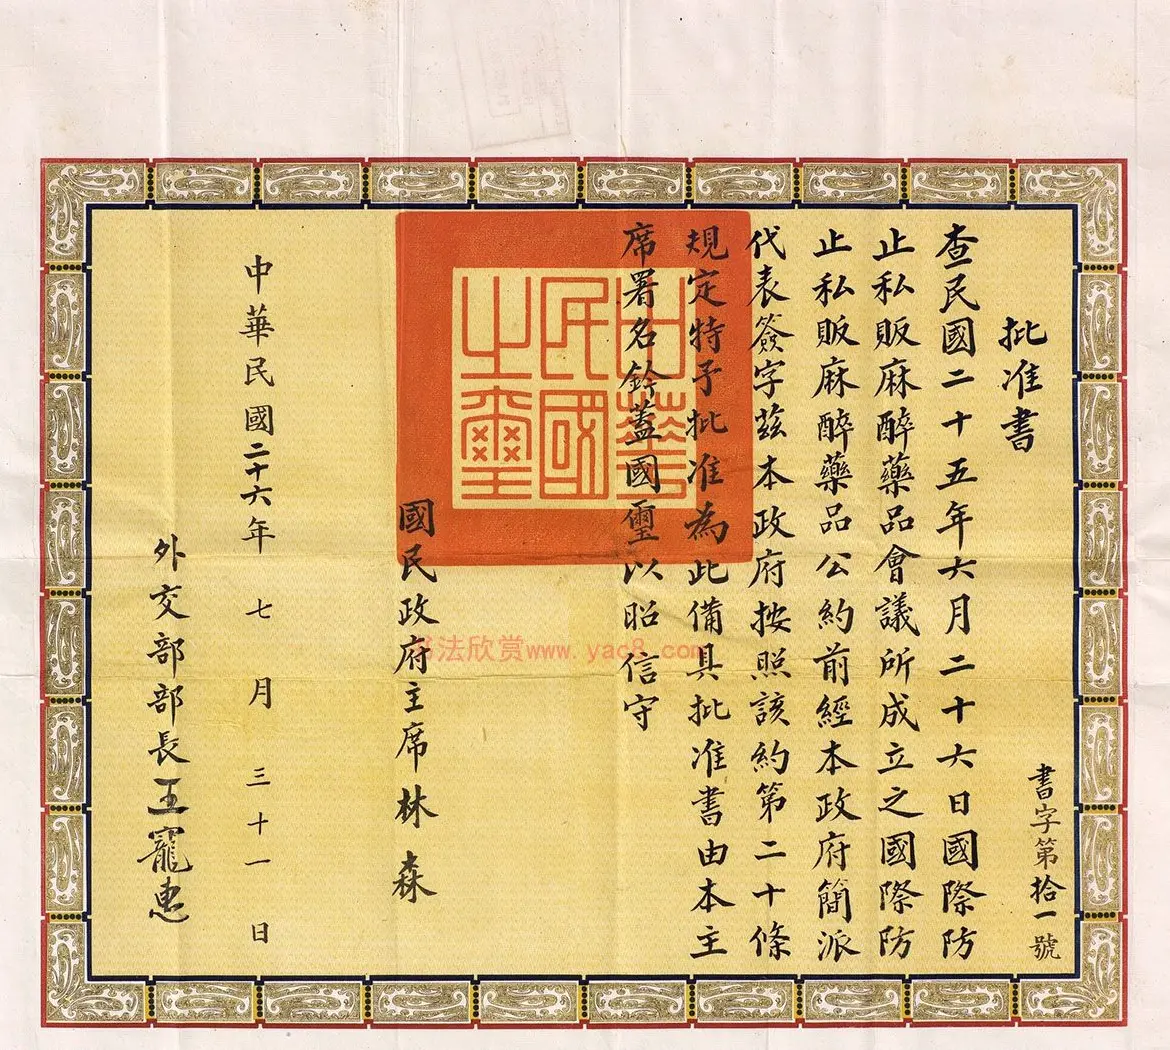 批准書
書字第拾一號
查民國二十五年六月二十六日國際防
止私販麻醉藥品會議所成立之國際防
止私販麻醉藥品公約前經本政府簡派
代表簽字茲本政府按照該約第二十條
規定特予批准為此備具批准書由本主
席署名鈐蓋國璽以昭信守
中華民國之璽
國民政府主席林森
中華民國二十六年七月三十一日
外交部部長王寵惠
书法欣赏www.yac8.com